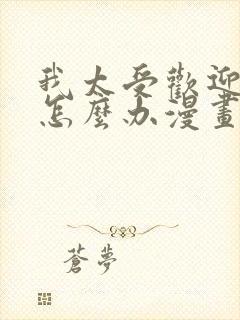 我太受歡迎
怎麼办漫畫
蒼夢